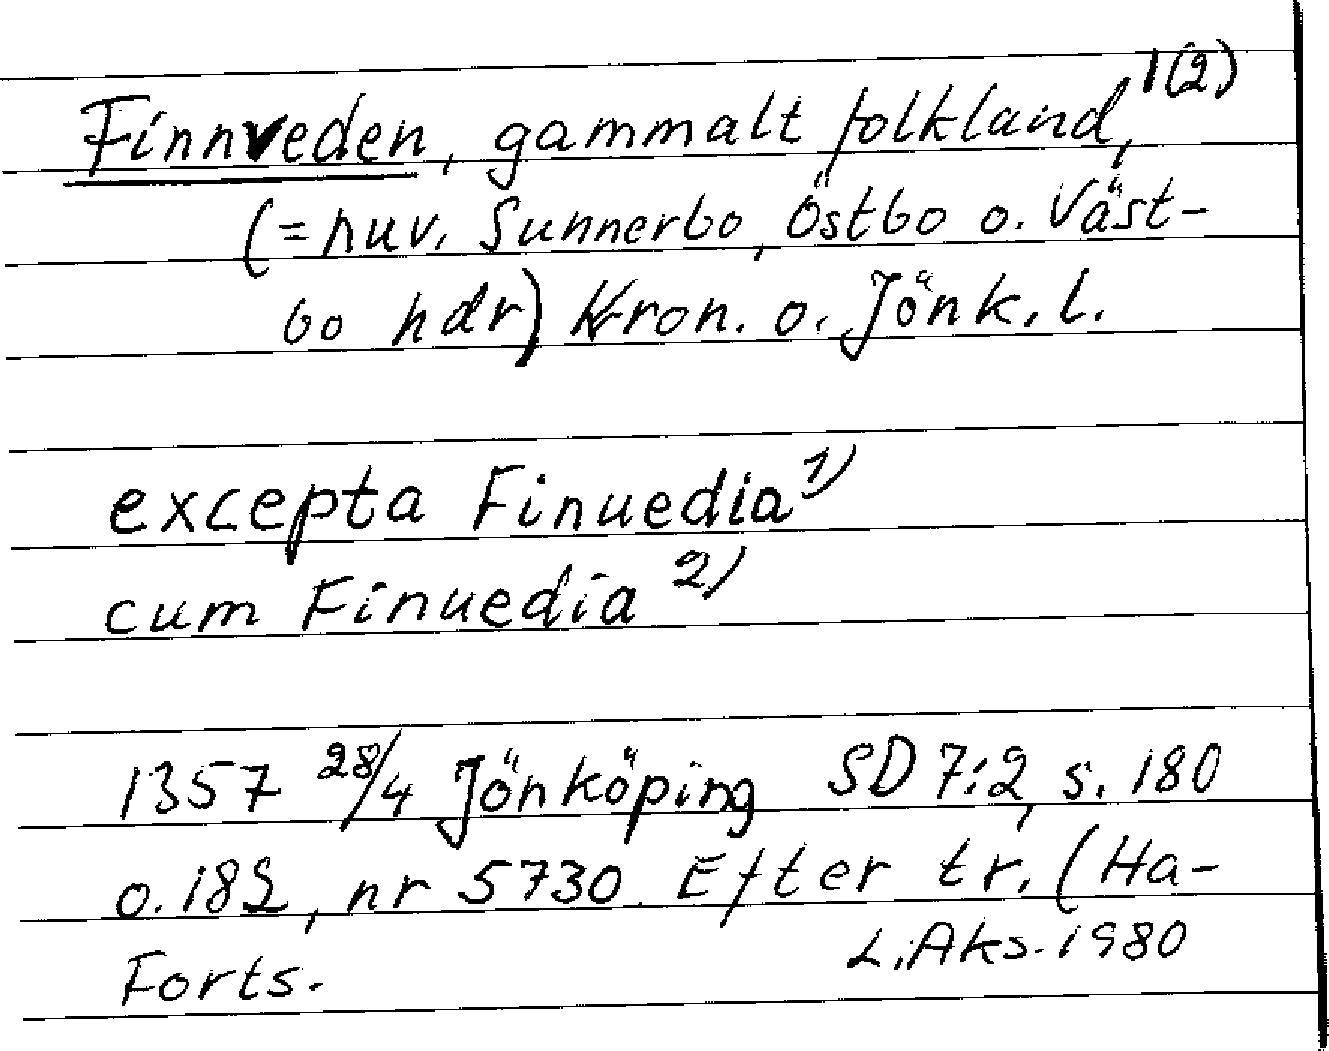 1(2)
Finnveden, gammalt folkland,
(=nuv. Sunnerbo, Östbo o. Väst-
bo hdr) Kron. o. Jönk. l.
excepta Finuedia 1)
cum Finuedia 2)
1357 28/4 Jönköping SD 7:2, s. 180
o. 182, nr 5730. Efter tr. (Ha-
Forts. L. Aks. 1980